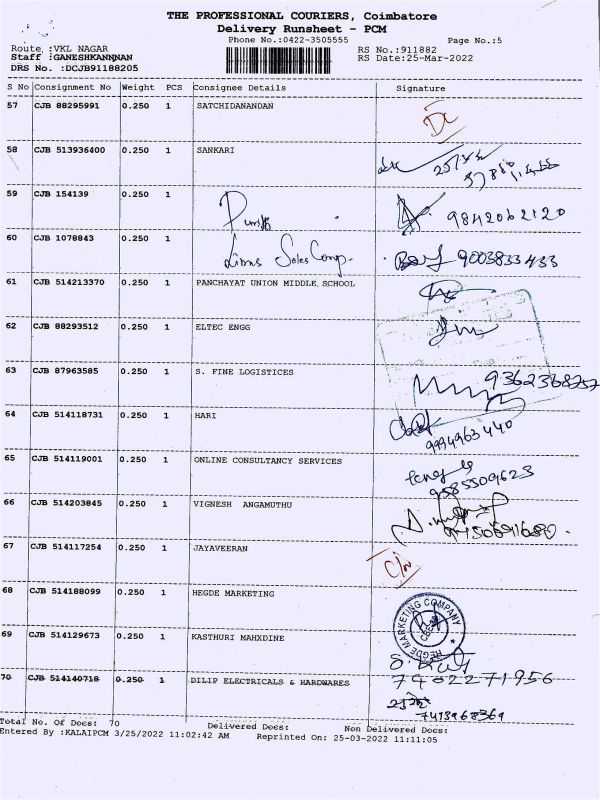 THE PROFESSIONAL COURIERS, Coimbatore
Delivery Runsheet - PCM
Phone No.:0422-3505555
Page No.:5
Route :VKL NAGAR
RS No.:911882
Staff :GANESHKANNNAN
RS Date:25-Mar-2022
DRS No. :DCJB91188205
S No Consignment No Weight PCS Consignee Details Signature
57 CJB 88295991 0.250 1 SATCHIDANANDAN
DL
58 CJB 513936400 0.250 1 SANKARI
59 CJB 154139 0.250 1
9842062120
60 CJB 1078843 0.250 1 Lims Sales Comp.
9003833433
61 CJB 514213370 0.250 1 PANCHAYAT UNION MIDDLE SCHOOL
62 CJB 88293512 0.250 1 ELTEC ENGG
63 CJB 87963585 0.250 1 S. FINE LOGISTICES
9362368257
64 CJB 514118731 0.250 1 HARI
9994963440
65 CJB 514119001 0.250 1 ONLINE CONSULTANCY SERVICES
9585509623
66 CJB 514203845 0.250 1 VIGNESH ANGAMUTHU
67 CJB 514117254 0.250 1 JAYAVEERAN
C/N
68 CJB 514188099 0.250 1 HEGDE MARKETING
HEGDE MARKETING COMPANY
69 CJB 514129673 0.250 1 KASTHURI MAHXDINE
7402271956
70 CJB 514140718 0.250 1 DILIP ELECTRICALS & HARDWARES
7413968369
Total No. Of Docs: 70 Delivered Docs: Non Delivered Docs:
Entered By :KALAIPCM 3/25/2022 11:02:42 AM Reprinted On: 25-03-2022 11:11:05